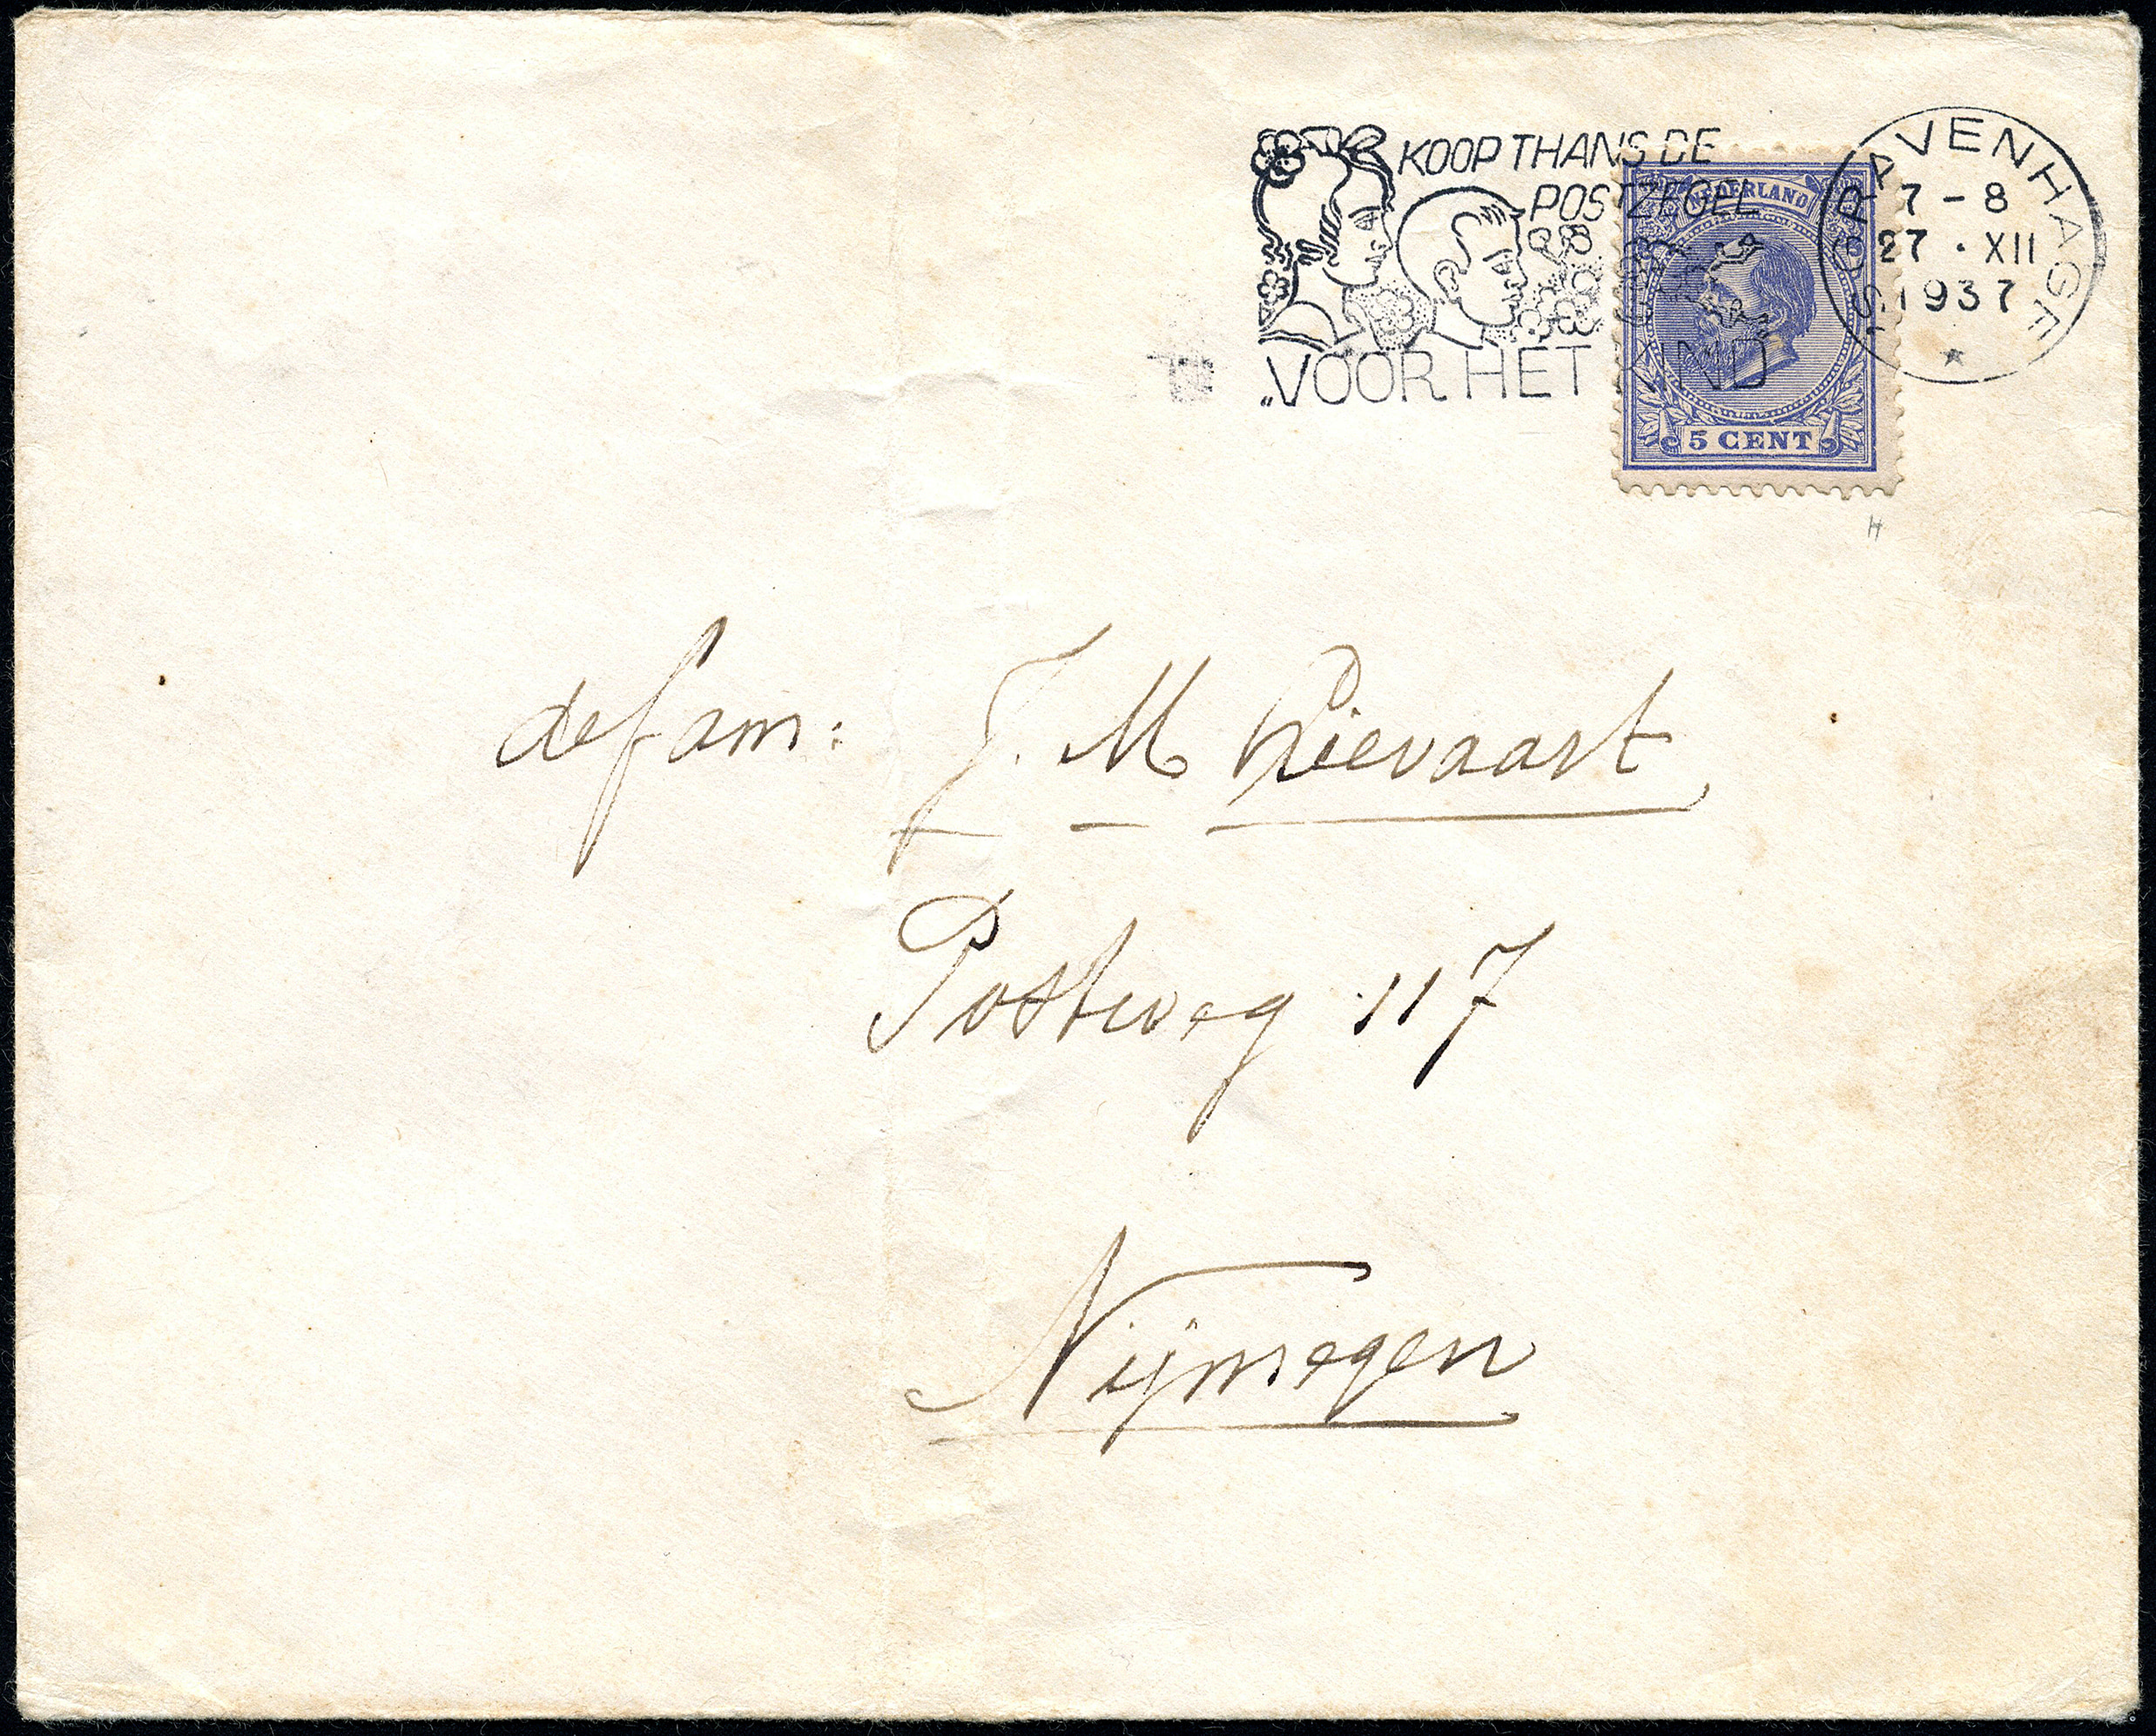 KOOP THANS DE
POSTZEGEL
„VOOR HET KIND
NEDERLAND
5 CENT
'S GRAVENHAGE
7 - 8
27 · XII
1937
de fam: J. M. Lievaart
Postweg 117
Nijmegen